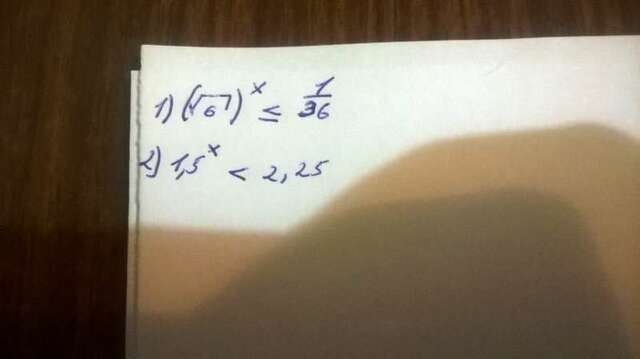 1) (√6)^x ≤ 1/36
2) 1,5^x < 2,25